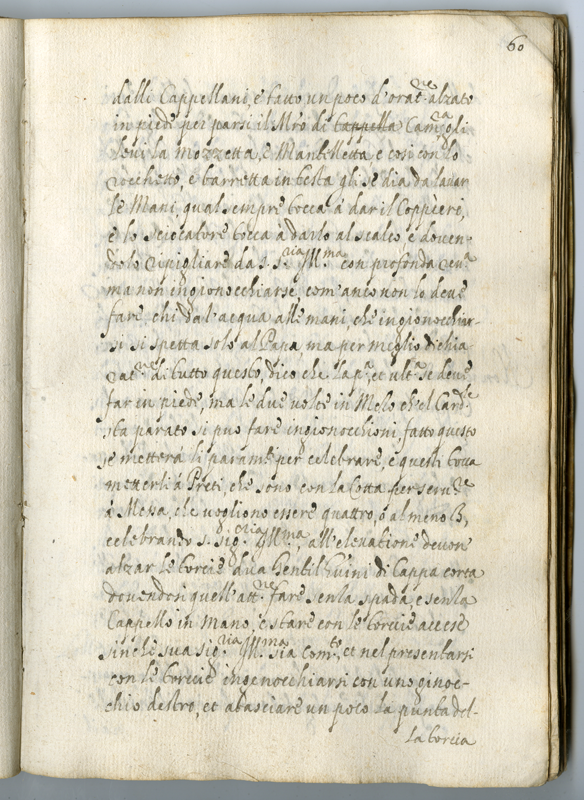 60
dalli Cappellani, e fatto un poco d'orat.ne alzato
in piedi per pararsi il Mro di Cappella Cam.ra gli
levi la mozzetta, e Mantelletta, e così con lo
rocchetto, e barretta in testa gli se dia da lavar
le Mani, qual sempre tocca à dar il Coppieri,
e lo sciucatore tocca à darlo al scalco, e doven-
dolo ripigliare da S. S.ria Ill.ma con profonda reu.a
ma non ingionocchiarse, com'anco non lo deve
fare chi dà l'acqua alle mani, che ingionocchiar-
si si spetta solo al Papa, ma per meglio dichia
rat.ne di tutto questo, dico che la p.a, et ult.a se deve
far in piede, ma le due volte in Mezo ch'el Card.le
sta parato si può fare ingionocchioni, fatto questo
se metterà li param.ti per celebrare, e questi tocca
metterli à Preti, che sono con la Cotta per serv.re
à Messa, che vogliono essere quattro, ò al meno 3,
celebrando S. Sig.ria Ill.ma, all'elevatione devon'
alzar le torcie dua Gentilhuini di Cappa corta
dovendosi quell'att.ne fare senza spada, e senza
Cappello in mano, e stare con le torcie accese
sinchè sua sig.ria Ill.ma sia com.to, et nel presentarsi
con le torcie ingenocchiarsi con uno ginoc-
chio destro, et abasciare un poco la punta del-
la torcia